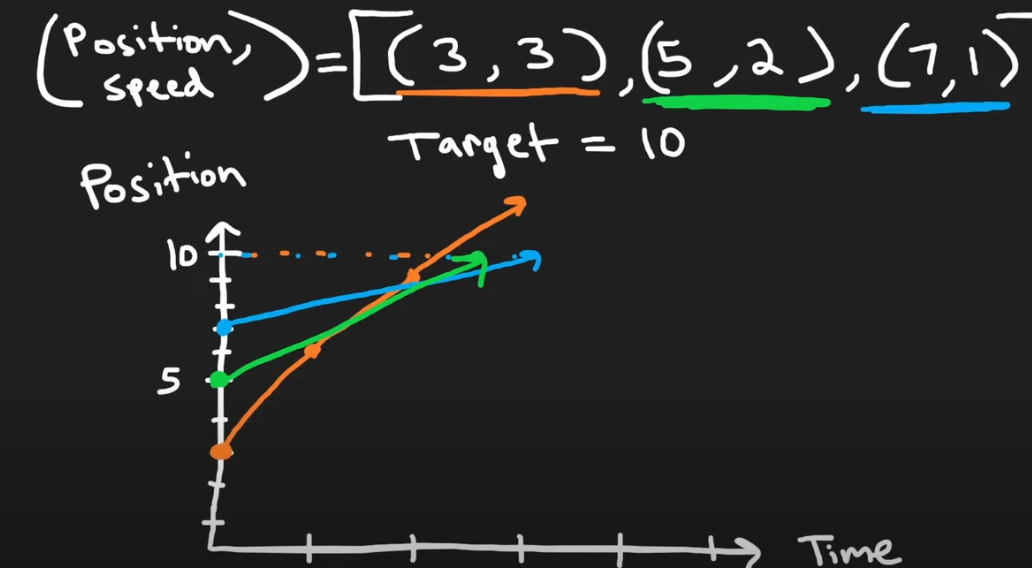 (Position, speed) = [(3, 3), (5, 2), (7, 1)
Target = 10
Position
10
5
Time